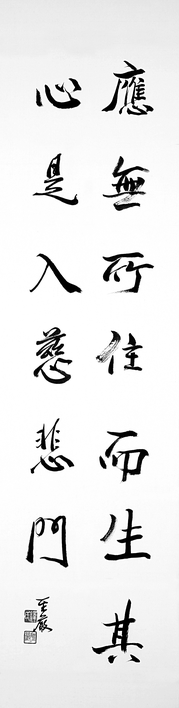 應無所住而生其
心是入慈悲門
聖嚴